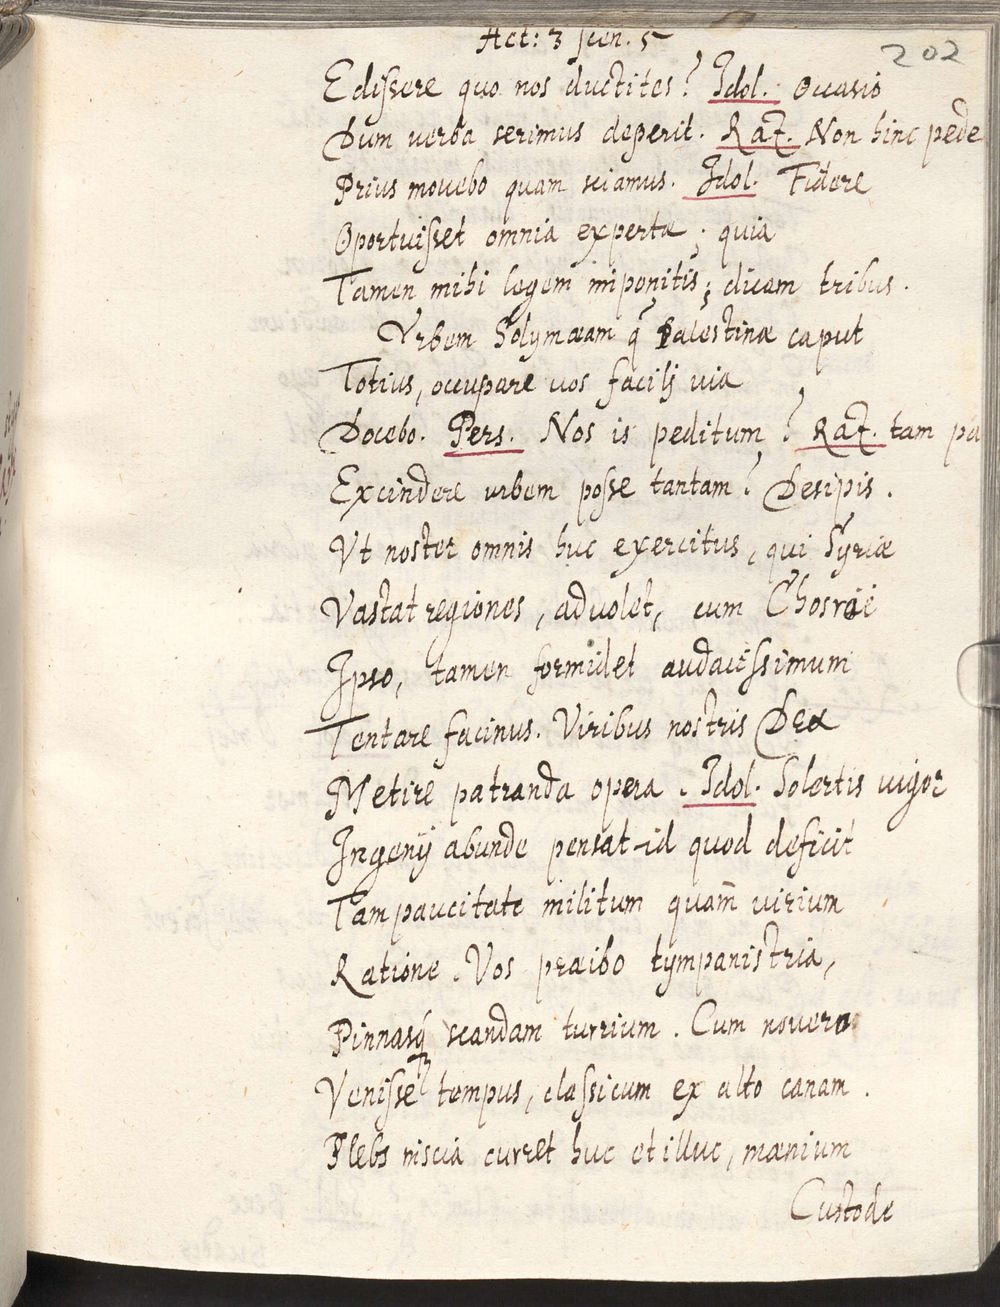 Act: 3 scen. 5
202
Edissere quo nos ductites? Idol. Occasio
Dum verba serimus deperit. Raz. Non hinc pede
Prius movebo quam sciamus. Idol. Fidere
Oportuisset omnia experta; quia
Tamen mihi legem imponitis; dicam tribus.
Vrbem Solymæam q̃ Palestinæ caput
Totius, occupare vos facili via
Docebo. Pers. Nos is peditum? Raz. tam
Excindere urbem posse tantam? Desipis.
Vt noster omnis huc exercitus, qui Syriæ
Vastat regiones, advolet, cum Chosroë
Ipso, tamen formidet audacissimum
Tentare facinus. Viribus nostris Dea
Metire patranda opera. Idol. Solertis vigor
Ingenij abunde pensat id quod deficit
Tam paucitate militum quam̃ virium
Ratione. Vos præibo tympanistria,
Pinnasq̃ scandam turrium. Cum novero
Venisse tempus, classicum ex alto canam.
Plebs niscia curret huc et illuc, mænium
Custode